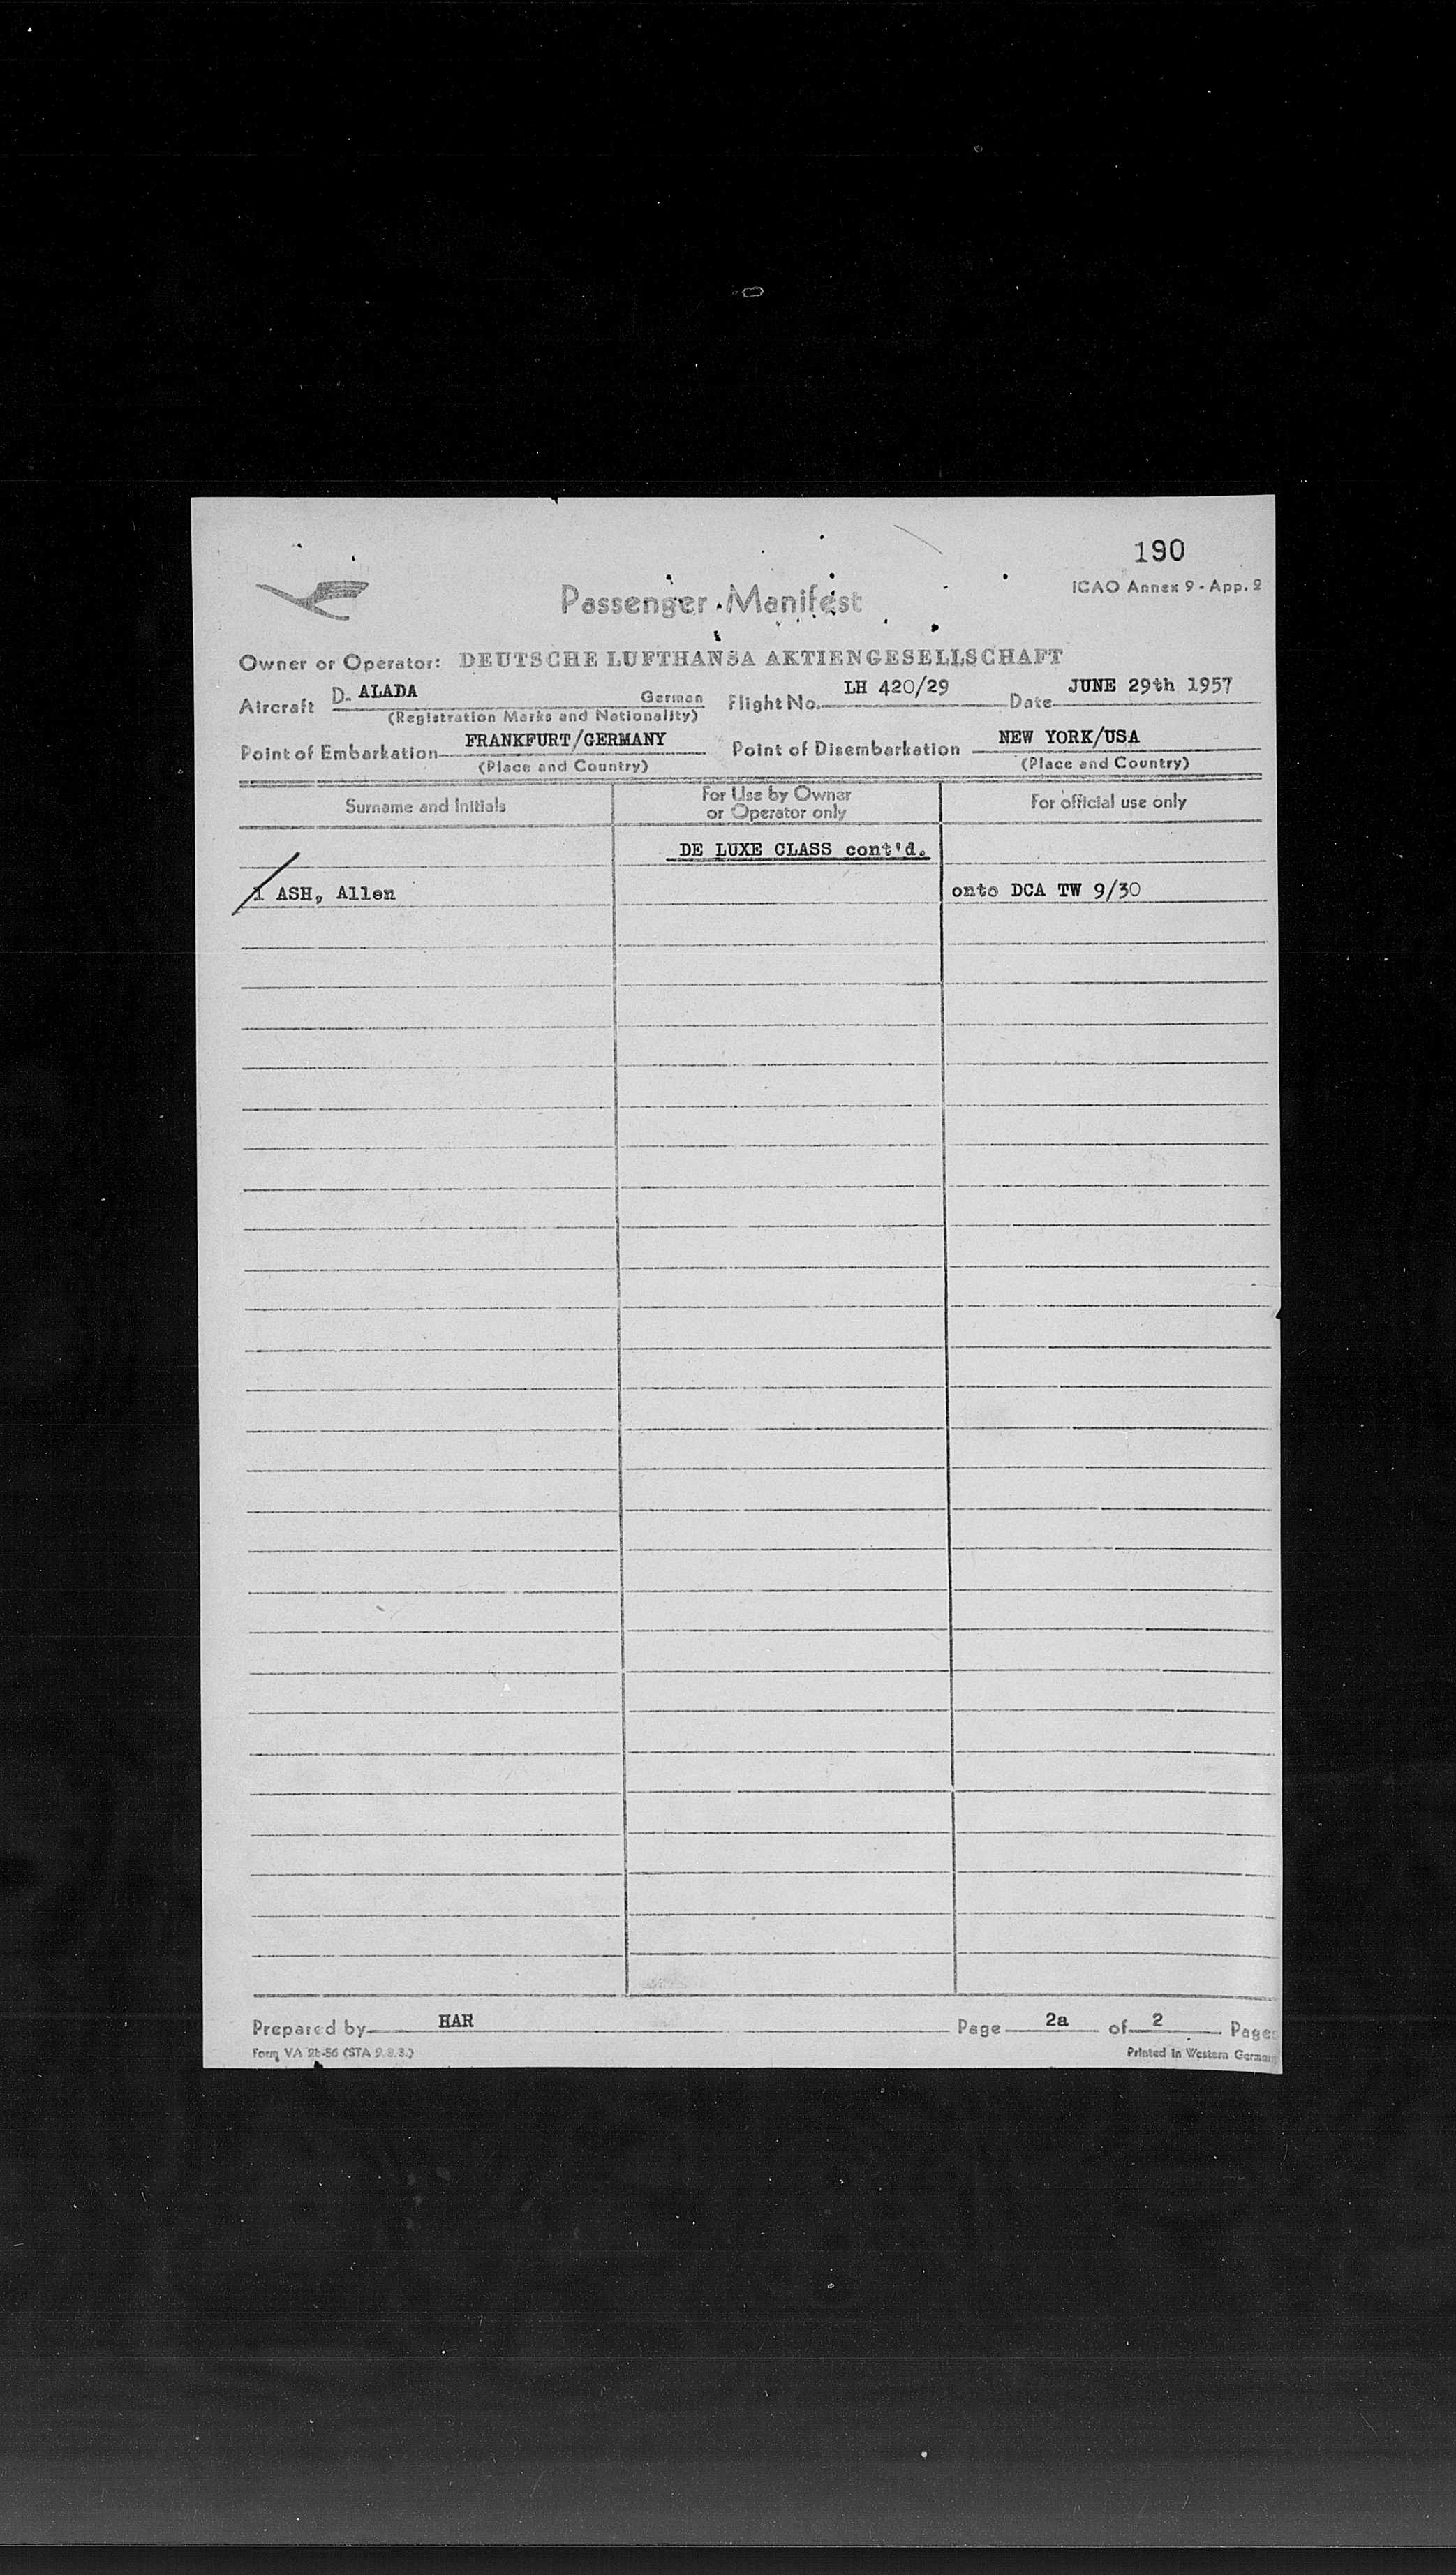 190
ICAO Annex 9 - App. 2
Passenger Manifest
Owner or Operator: DEUTSCHE LUFTHANSA AKTIENGESELLSCHAFT
Aircraft D- ALADA German Flight No. LH 420/29 Date JUNE 29th 1957
(Registration Marks and Nationality)
Point of Embarkation FRANKFURT/GERMANY Point of Disembarkation NEW YORK/USA
(Place and Country) (Place and Country)
Surname and Initials For Use by Owner or Operator only For official use only
DE LUXE CLASS cont'd.
1 ASH, Allen onto DCA TW 9/30
Prepared by HAR Page 2a of 2 Pages
Form VA 2b-56 (STA 9.3.3.) Printed in Western Germany